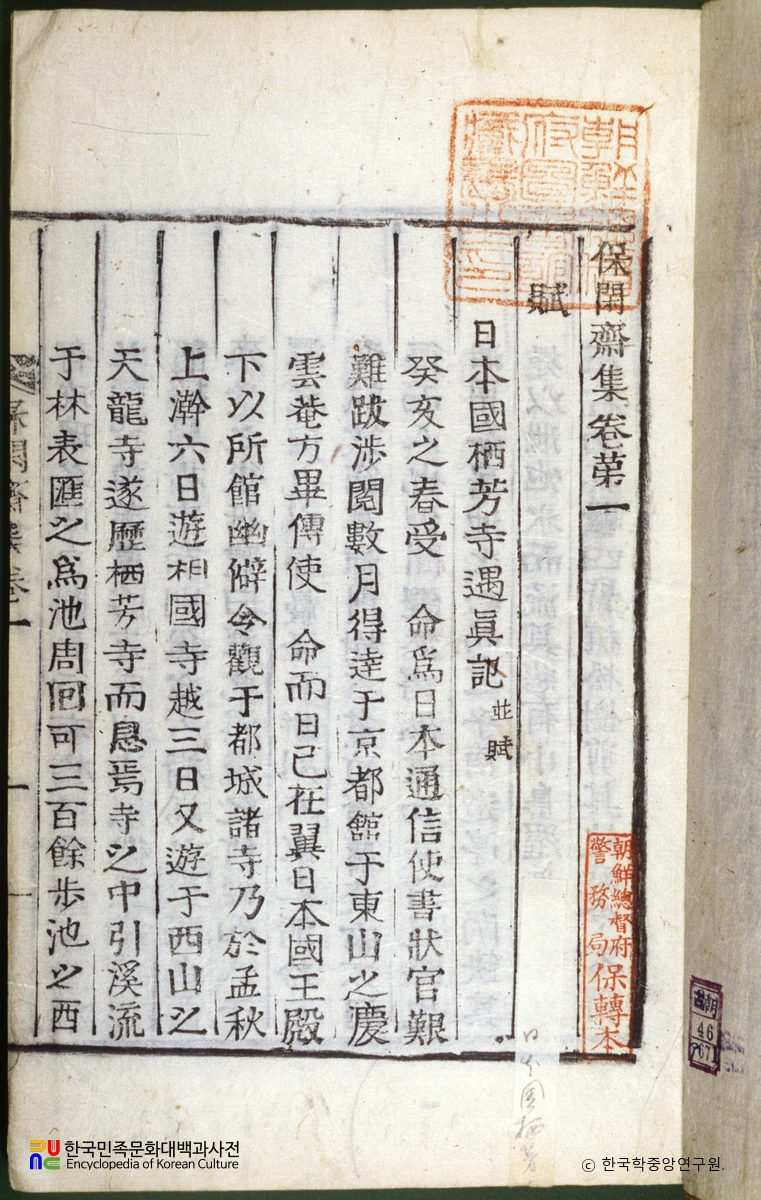 保閑齋集卷第一
賦
日本國栖芳寺遇眞記 並賦
癸亥之春受 命爲日本通信使書狀官艱
難跋涉閱數月得達于京都舘于東山之慶
雲菴方畢傳使 命而日已在翼日本國王殿
下以所館幽僻令觀于都城諸寺乃於孟秋
上澣六日遊相國寺越三日又遊于西山之
天龍寺遂歷栖芳寺而息焉寺之中引溪流
于林表匯之爲池周回可三百餘步池之西
保閑齋集卷一
朝鮮總督府
警務局保轉本
朝
古
46
가67
한국민족문화대백과사전
Encyclopedia of Korean Culture
© 한국학중앙연구원.